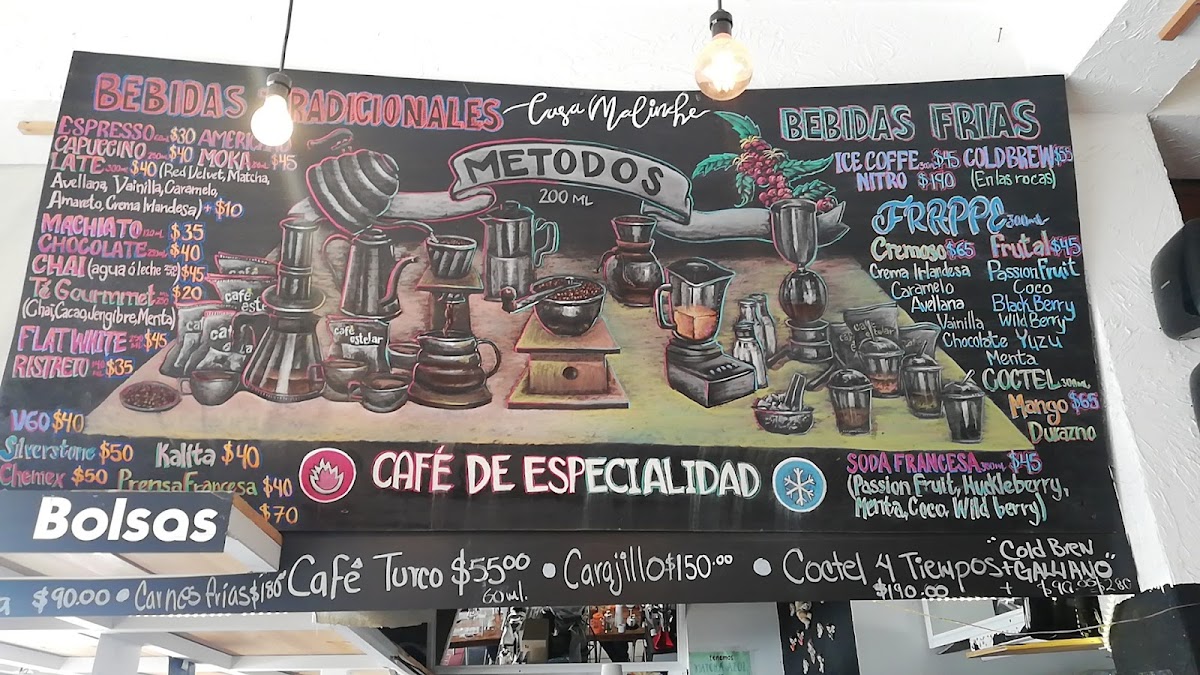 BEBIDAS TRADICIONALES
ESPRESSO 60ml $30 AMERICANO
CAPUCCINO $40 MOKA $45
LATE 300ml $40 (Red Velvet, Matcha,
Avellana, Vainilla, Caramelo,
Amareto, Crema Irlandesa) + $10
MACHIATO $35
CHOCOLATE $40
CHAI (agua ó leche) $45
Té Gourmmet $20
(Chai, Cacao, Jengibre, Menta)
FLAT WHITE $45
RISTRETO $35
V60 $40
Silverstone $50 Kalita $40
Chemex $50 Prensa Francesa $40
$70
Casa Malinche
METODOS
200 ML
café estelar
CAFÉ DE ESPECIALIDAD
BEBIDAS FRIAS
ICE COFFE $45 COLDBREW $55
NITRO $190 (En las rocas)
FRAPPE 300ml
Cremoso $65 Frutal $45
Crema Irlandesa Passion Fruit
Caramelo Coco
Avellana Black Berry
Vainilla Wild Berry
Chocolate Yuzu
Menta
COCTEL 300ml
Mango $65
Durazno
SODA FRANCESA 300ml $45
(Passion Fruit, Huckleberry,
Menta, Coco, Wild berry)
Bolsas
$90.00 • Carnes frias $180
Café Turco $55.00 • Carajillo $150.00 • Coctel 4 Tiempos "Cold Brew
60 ml. $190.00 + GALLIANO"
tenemos